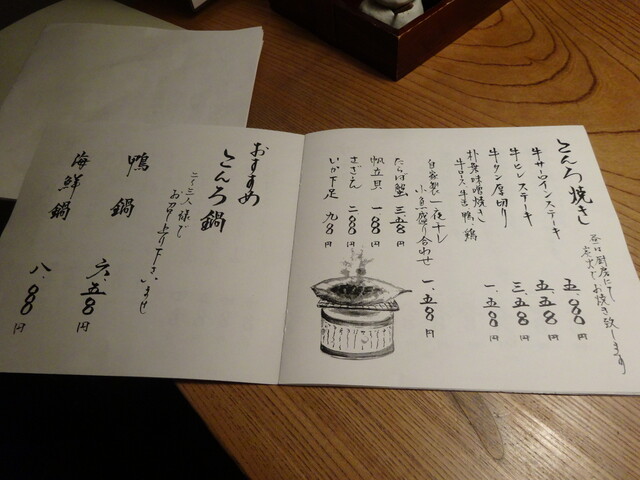 とんろ焼き
昼は厨房にて
炭火でお焼き致します
牛サーロインステーキ 五.〇〇〇円
牛ヒレステーキ 五.五〇〇円
牛タン厚切り 三.五〇〇円
朴葉味噌焼き
牛ロース 牛舌 鴨 鶏 一.五〇〇円
自家製一夜干し
小魚盛り合わせ 一.五〇〇円
たらば蟹 三五〇〇円
帆立貝 一〇〇〇円
さざえ 二〇〇〇円
いか下足 九〇〇円
おすすめ
とんろ鍋
二〜三人様で
お召し上り下さいませ
鴨鍋 六.五〇〇円
海鮮鍋 八.〇〇〇円